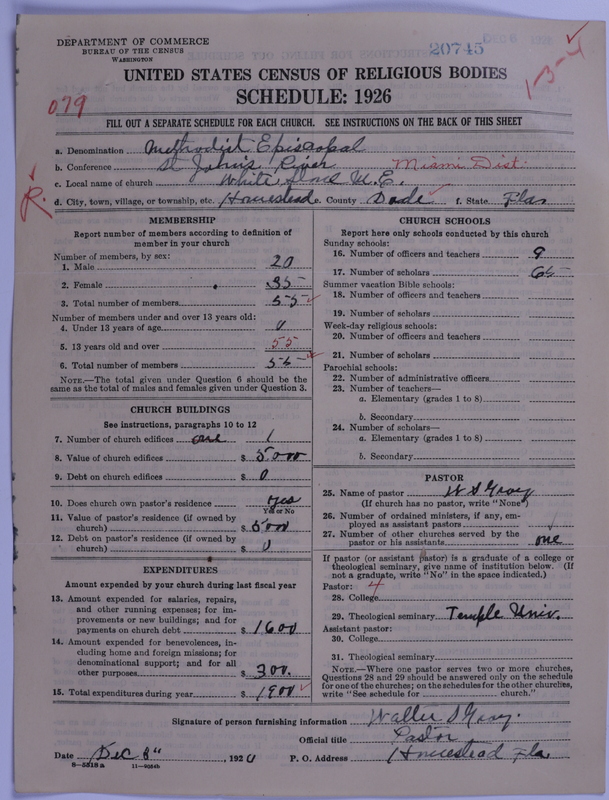 DEPARTMENT OF COMMERCE
BUREAU OF THE CENSUS
WASHINGTON
20745
UNITED STATES CENSUS OF RELIGIOUS BODIES
SCHEDULE: 1926
079
1-3-4
FILL OUT A SEPARATE SCHEDULE FOR EACH CHURCH. SEE INSTRUCTIONS ON THE BACK OF THIS SHEET
a. Denomination Methodist Episcopal
b. Conference St John's River Miami Dist.
c. Local name of church White Stone M.E.
d. City, town, village, or township, etc. Homestead e. County Dade f. State Fla
R.
MEMBERSHIP
Report number of members according to definition of
member in your church
Number of members, by sex:
1. Male 20
2. Female 35
3. Total number of members 55
Number of members under and over 13 years old:
4. Under 13 years of age 0
5. 13 years old and over 55
6. Total number of members 55
NOTE.—The total given under Question 6 should be the
same as the total of males and females given under Question 3.
CHURCH BUILDINGS
See instructions, paragraphs 10 to 12
7. Number of church edifices one 1
8. Value of church edifices $ 5000
9. Debt on church edifices $ 0
10. Does church own pastor's residence yes
Yes or No
11. Value of pastor's residence (if owned by
church) $ 5000
12. Debt on pastor's residence (if owned by
church) $ 0
EXPENDITURES
Amount expended by your church during last fiscal year
13. Amount expended for salaries, repairs,
and other running expenses; for im-
provements or new buildings; and for
payments on church debt $ 1600
14. Amount expended for benevolences, in-
cluding home and foreign missions; for
denominational support; and for all
other purposes $ 300.
15. Total expenditures during year $ 1900
CHURCH SCHOOLS
Report here only schools conducted by this church
Sunday schools:
16. Number of officers and teachers 9
17. Number of scholars 65
Summer vacation Bible schools:
18. Number of officers and teachers
19. Number of scholars
Week-day religious schools:
20. Number of officers and teachers
21. Number of scholars
Parochial schools:
22. Number of administrative officers
23. Number of teachers—
a. Elementary (grades 1 to 8)
b. Secondary
24. Number of scholars—
a. Elementary (grades 1 to 8)
b. Secondary
PASTOR
25. Name of pastor W S Gray
(If church has no pastor, write "None")
26. Number of ordained ministers, if any, em-
ployed as assistant pastors
27. Number of other churches served by the
pastor or his assistants one
If pastor (or assistant pastor) is a graduate of a college or
theological seminary, give name of institution below. (If
not a graduate, write "No" in the space indicated.)
Pastor: 4
28. College
29. Theological seminary Temple Univ.
Assistant pastor:
30. College
31. Theological seminary
NOTE.—Where one pastor serves two or more churches,
Questions 28 and 29 should be answered only on the schedule
for one of the churches; on the schedules for the other churches,
write "See schedule for church."
Signature of person furnishing information Walter S Gray.
Official title Pastor
Date Dec 8", 1926 P. O. Address Homestead Fla
8—5518 a 11—9054b